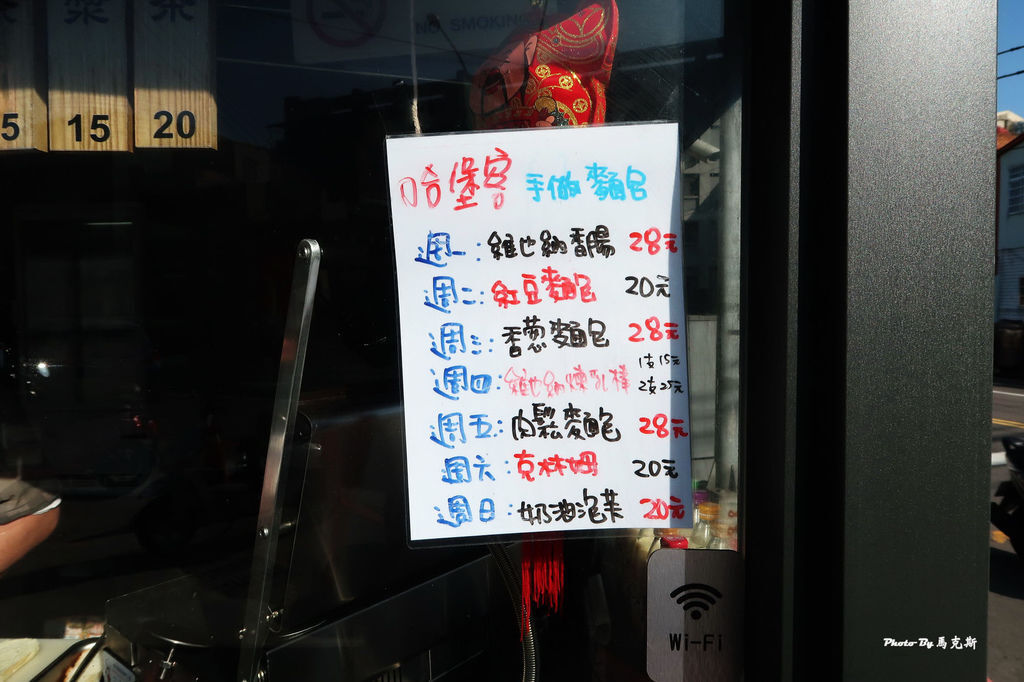 NO SMOKING
茶
5
15
20
哈堡客 手做麵包
週一：維也納香腸 28元
週二：紅豆麵包 20元
週三：香蔥麵包 28元
1支15元
週四：維也納煉乳棒 2支25元
週五：肉鬆麵包 28元
週六：克林姆 20元
週日：奶油泡芙 20元
Wi-Fi
Photo By 馬克斯